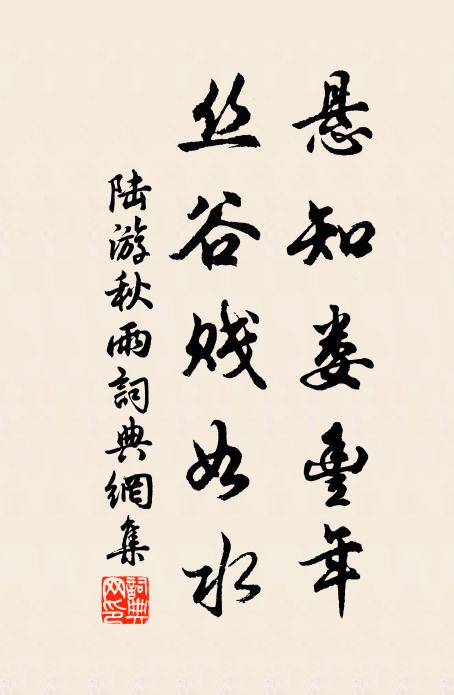 悬知娄豐年
丝谷贱如水
陆游秋雨詞典網集
詞典网印